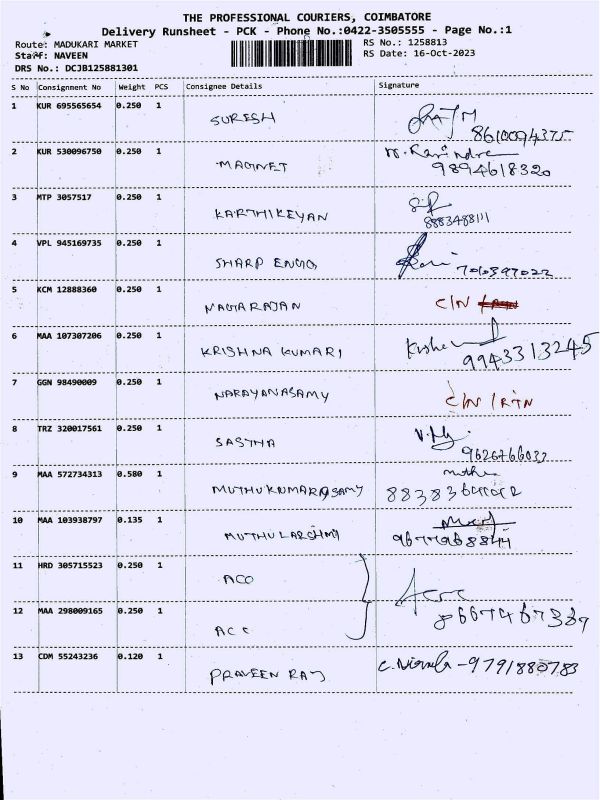 THE PROFESSIONAL COURIERS, COIMBATORE
Delivery Runsheet - PCK - Phone No.:0422-3505555 - Page No.:1
Route: MADUKARI MARKET RS No.: 1258813
Staff: NAVEEN RS Date: 16-Oct-2023
DRS No.: DCJB125881301
S No Consignment No Weight PCS Consignee Details Signature
1 KUR 695565654 0.250 1 SURESH 8610094375
2 KUR 530096750 0.250 1 MAGNET 9894618320
3 MTP 3057517 0.250 1 KARTHIKEYAN 8883488111
4 VPL 945169735 0.250 1 SHARP ENGG
5 KCM 12888360 0.250 1 NAGARAJAN C/N
6 MAA 107307206 0.250 1 KRISHNA KUMARI 9943313245
7 GGN 98490009 0.250 1 NARAYANASAMY C/N / RTN
8 TRZ 320017561 0.250 1 SASTHA 9626766033
9 MAA 572734313 0.580 1 MUTHUKUMARASAMY
10 MAA 103938797 0.135 1 MUTHULAKSHMI 9677968844
11 HRD 305715523 0.250 1 ACO
12 MAA 298009165 0.250 1 ACC 8667467337
13 CDM 55243236 0.120 1 PRAVEEN RAJ C. Nirmala - 9791880783